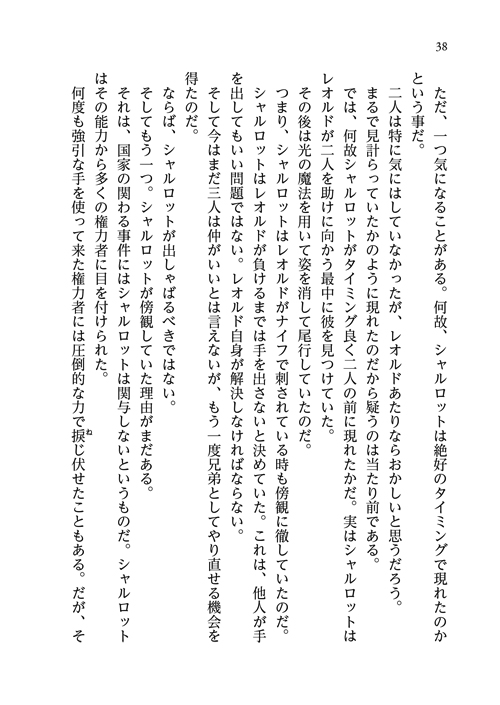 38
　ただ、一つ気になることがある。何故、シャルロットは絶好のタイミングで現れたのか
という事だ。
　二人は特に気にはしていなかったが、レオルドあたりならおかしいと思うだろう。
　まるで見計らっていたかのように現れたのだから疑うのは当たり前である。
　では、何故シャルロットがタイミング良く二人の前に現れたかだ。実はシャルロットは
レオルドが二人を助けに向かう最中に彼を見つけていた。
　その後は光の魔法を用いて姿を消して尾行していたのだ。
　つまり、シャルロットはレオルドがナイフで刺されている時も傍観に徹していたのだ。
　シャルロットはレオルドが負けるまでは手を出さないと決めていた。これは、他人が手
を出してもいい問題ではない。レオルド自身が解決しなければならない。
　そして今はまだ三人は仲がいいとは言えないが、もう一度兄弟としてやり直せる機会を
得たのだ。
　ならば、シャルロットが出しゃばるべきではない。
　そしてもう一つ。シャルロットが傍観していた理由がまだある。
　それは、国家の関わる事件にはシャルロットは関与しないというものだ。シャルロット
はその能力から多くの権力者に目を付けられた。
　何度も強引な手を使って来た権力者には圧倒的な力で捩ね じ伏せたこともある。だが、そ